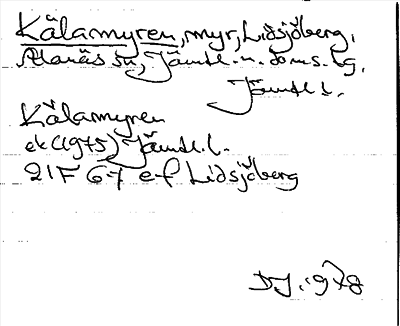 Kälamyren, myr, Lidsjöberg,
Alanäs sn, Jämtl. n. doms. tg,
Jämtl. l.
Kälamyren
ek (1975) Jämtl. l.
21F 6-7 e-f Lidsjöberg
D.J. 1978